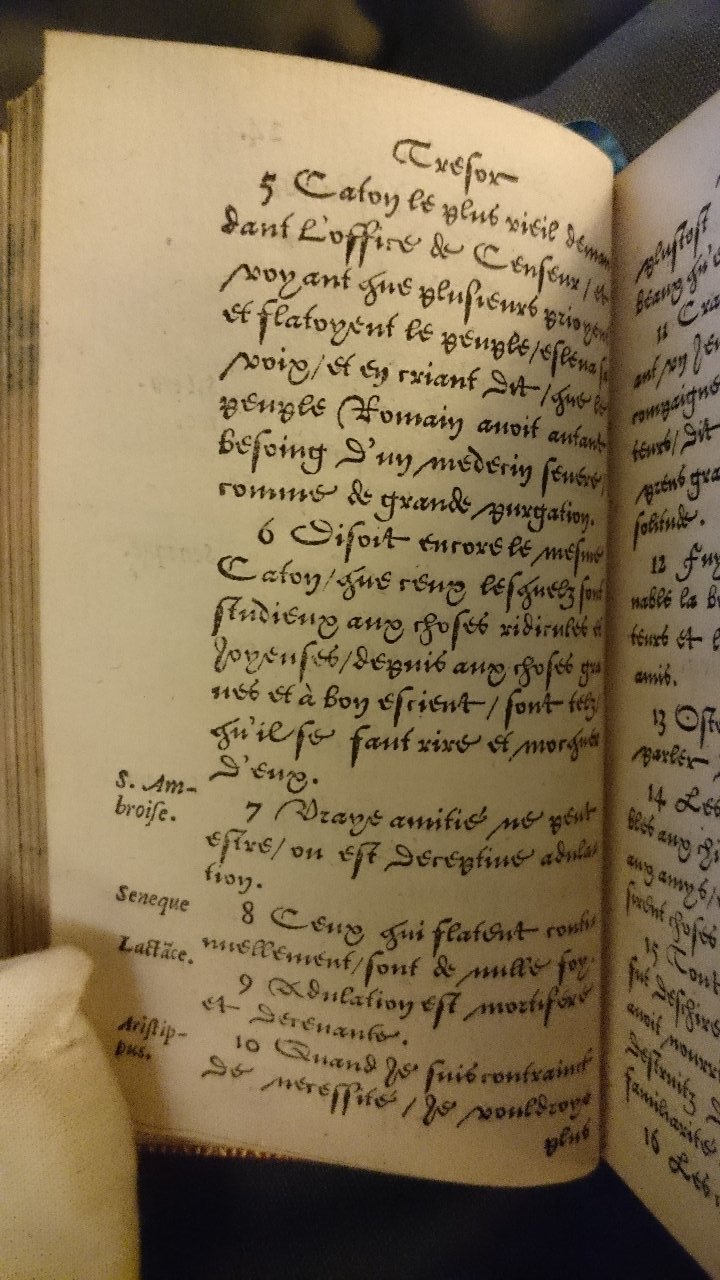 Tresor
5 Caton le plus vieil deman
dant l'office de Censeur / et
voyant que plusieurs prioyent
et flatoyent le peuple / esleva sa
voix / et en criant dit / que le
peuple Romain avoit autant
besoing d'un medecin severe,
comme de grande purgation.
6 Disoit encore le mesme
Caton / que ceux lesquelz sont
studieux aux choses ridicules et
joyeuses / depuis aux choses gra
ves et à bon escient / sont telz /
qu'il se faut rire et mocquer
d'eux.
S. Am-
broise.
7 Vraye amitié ne peut
estre / ou est deceptive adula
tion.
Seneque
8 Ceux qui flatent conti
nuellement / sont de nulle foy.
Lactāce.
9 Adulation est mortifere
et decevante.
Aristip-
pus.
10 Quand je suis contrainct
de necessité / je vouldroye
plus
plustost
beaux qu'e
11 Cra
ant un jeu
compaigne
teurs / dit
prens gra
solitude.
12 Fuy
nable la b
teurs et l
amis.
13 Oste
parler
14 Les
bles aux chi
aux amys /
sirent choses
15 Tout
fut deschire
avoit nourri
destruitz d
familiarité
16 Les